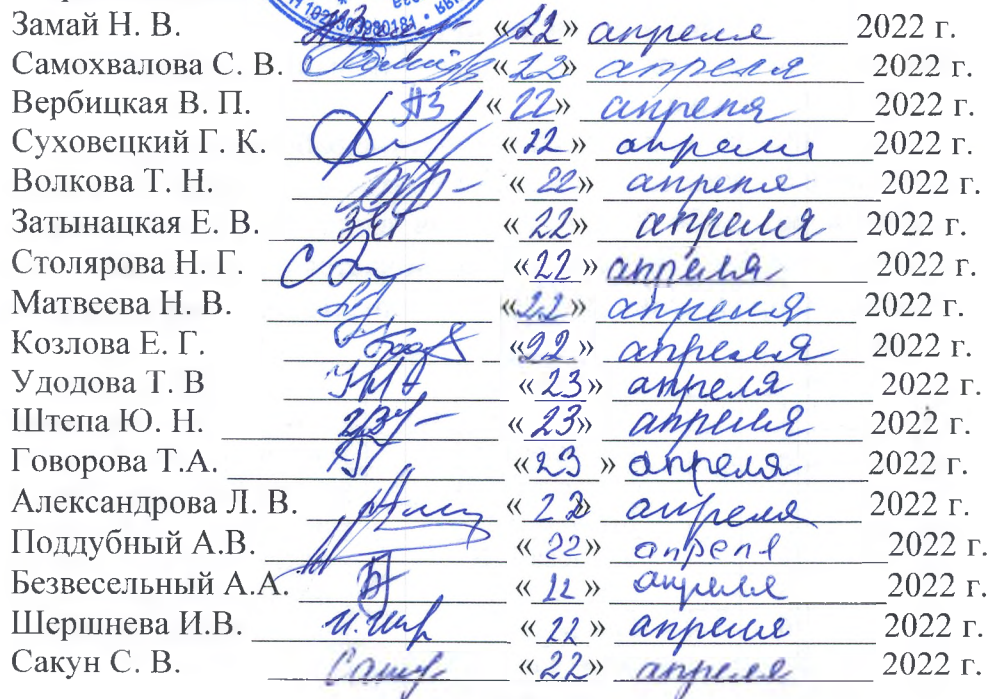 Замай Н. В. «22» апреля 2022 г.
Самохвалова С. В. «22» апреля 2022 г.
Вербицкая В. П. «22» апреля 2022 г.
Суховецкий Г. К. «22» апреля 2022 г.
Волкова Т. Н. «22» апреля 2022 г.
Затынацкая Е. В. «22» апреля 2022 г.
Столярова Н. Г. «22» апреля 2022 г.
Матвеева Н. В. «22» апреля 2022 г.
Козлова Е. Г. «22» апреля 2022 г.
Удодова Т. В «23» апреля 2022 г.
Штепа Ю. Н. «23» апреля 2022 г.
Говорова Т.А. «23» апреля 2022 г.
Александрова Л. В. «22» апреля 2022 г.
Поддубный А.В. «22» апреля 2022 г.
Безвесельный А.А. «22» апреля 2022 г.
Шершнева И.В. «22» апреля 2022 г.
Сакун С. В. «22» апреля 2022 г.